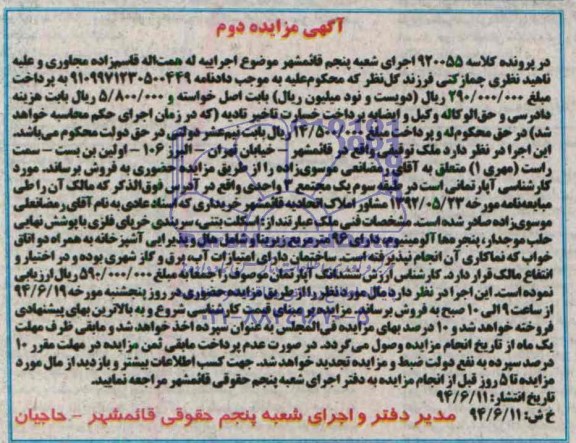 آگهی مزایده دوم
در پرونده کلاسه 920055 اجرای شعبه پنجم قائمشهر موضوع اجراییه له همت‌اله قاسم‌زاده مجاوری و علیه
ناهید نظری چمازکتی فرزند گل‌نظر که محکوم‌علیه به موجب دادنامه 9109971230500449 به پرداخت
مبلغ 290/000/000 ریال (دویست و نود میلیون ریال) بابت اصل خواسته و 5/800/000 ریال بابت هزینه
دادرسی و حق‌الوکاله وکیل و ایضاً پرداخت خسارت تاخیر تادیه (که در زمان اجرای حکم محاسبه خواهد
شد) در حق محکوم‌له و پرداخت مبلغ ریال بابت نیم‌عشر دولتی در حق دولت محکوم می‌باشد.
این اجرا در نظر دارد ملک توقیفی واقع در قائمشهر - خیابان تهران - البرز 106 - اولین بن بست - سمت
راست (مهری 1) متعلق به آقای رمضانعلی موسوی‌زاده را از طریق مزایده حضوری به فروش برساند. مورد
کارشناسی آپارتمانی است در طبقه سوم یک مجتمع 3 واحدی واقع در آدرس فوق‌الذکر که مالک آن را طی
مبایعه‌نامه مورخه 1392/05/23 مشاور املاک اتحادیه قائمشهر خریداری که اسناد عادی به نام آقای رمضانعلی
موسوی‌زاده صادر شده است. مشخصات فنی ملک عبارتند از: اسکلت بتنی، سربندی خرپای فلزی با پوشش نهایی
حلب موجدار، پنجره‌ها آلومینیوم، دارای 96 مترمربع زیربنا و شامل هال و پذیرایی آشپزخانه به همراه دو اتاق
خواب که نماکاری آن انجام نپذیرفته است. ساختمان دارای امتیازات آب، برق و گاز شهری بوده و در اختیار و
انتفاع مالک قرار دارد. کارشناس ارزش ششدانگ آپارتمان موصوف را جمعاً به مبلغ 590/000/000 ریال ارزیابی
نموده است. این اجرا در نظر دارد مال مورد نظر را از طریق مزایده حضوری در روز پنجشنبه مورخه 94/6/19
از ساعت 9 الی 10 صبح به فروش برساند. مزایده بر مبنای قیمت کارشناسی شروع و به بالاترین بهای پیشنهادی
فروخته خواهد شد و 10 درصد بهای مزایده فی‌المجلس به عنوان سپرده اخذ خواهد شد و مابقی ظرف مهلت
یک ماه از تاریخ انجام مزایده وصول می‌گردد. در صورت عدم پرداخت مابقی ثمن مزایده در مهلت مقرر 10
درصد سپرده به نفع دولت ضبط و مزایده تجدید خواهد شد. جهت کسب اطلاعات بیشتر و بازدید از مال مورد
مزایده تا 5 روز قبل از انجام مزایده به دفتر اجرای شعبه پنجم حقوقی قائمشهر مراجعه نمایید.
تاریخ انتشار: 94/6/11
خ ش: 94/6/11 مدیر دفتر و اجرای شعبه پنجم حقوقی قائمشهر - حاجیان